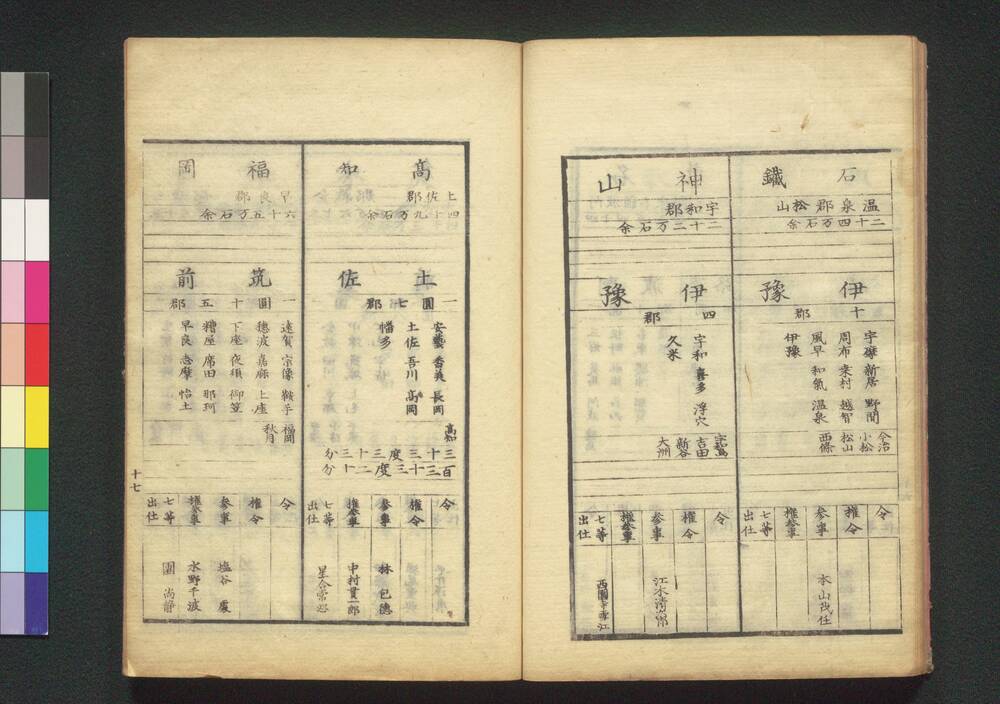 石鐵
温泉郡松山
二十四万石余
伊豫
十郡
宇摩 新居 野間
周布 桒村 越智
風早 和氣 温泉
伊豫
今治
小松
松山
西條
令
權令
参事
權参事
七等出仕
神山
宇和郡
二十二万石余
伊豫
四郡
宇和 喜多 浮穴
久米
吉田
新谷
大洲
令
權令
参事
權参事
七等出仕
高知
土佐郡
四十九万石余
土佐
一圓七郡
安藝 香美 長岡
土佐 吾川 高岡
幡多
高知
令
權令
参事
權参事
七等出仕
林 包德
中村貫一郎
福岡
早良郡
六十五万石余
筑前
一圓十五郡
遠賀 宗像 鞍手
穂波 嘉麻 上座
下座 夜須 御笠
糟屋 席田 那珂
早良 志摩 怡土
福岡
秋月
令
權令
参事
權参事
七等出仕
塩谷 處
水野千波
團 尚靜
十七